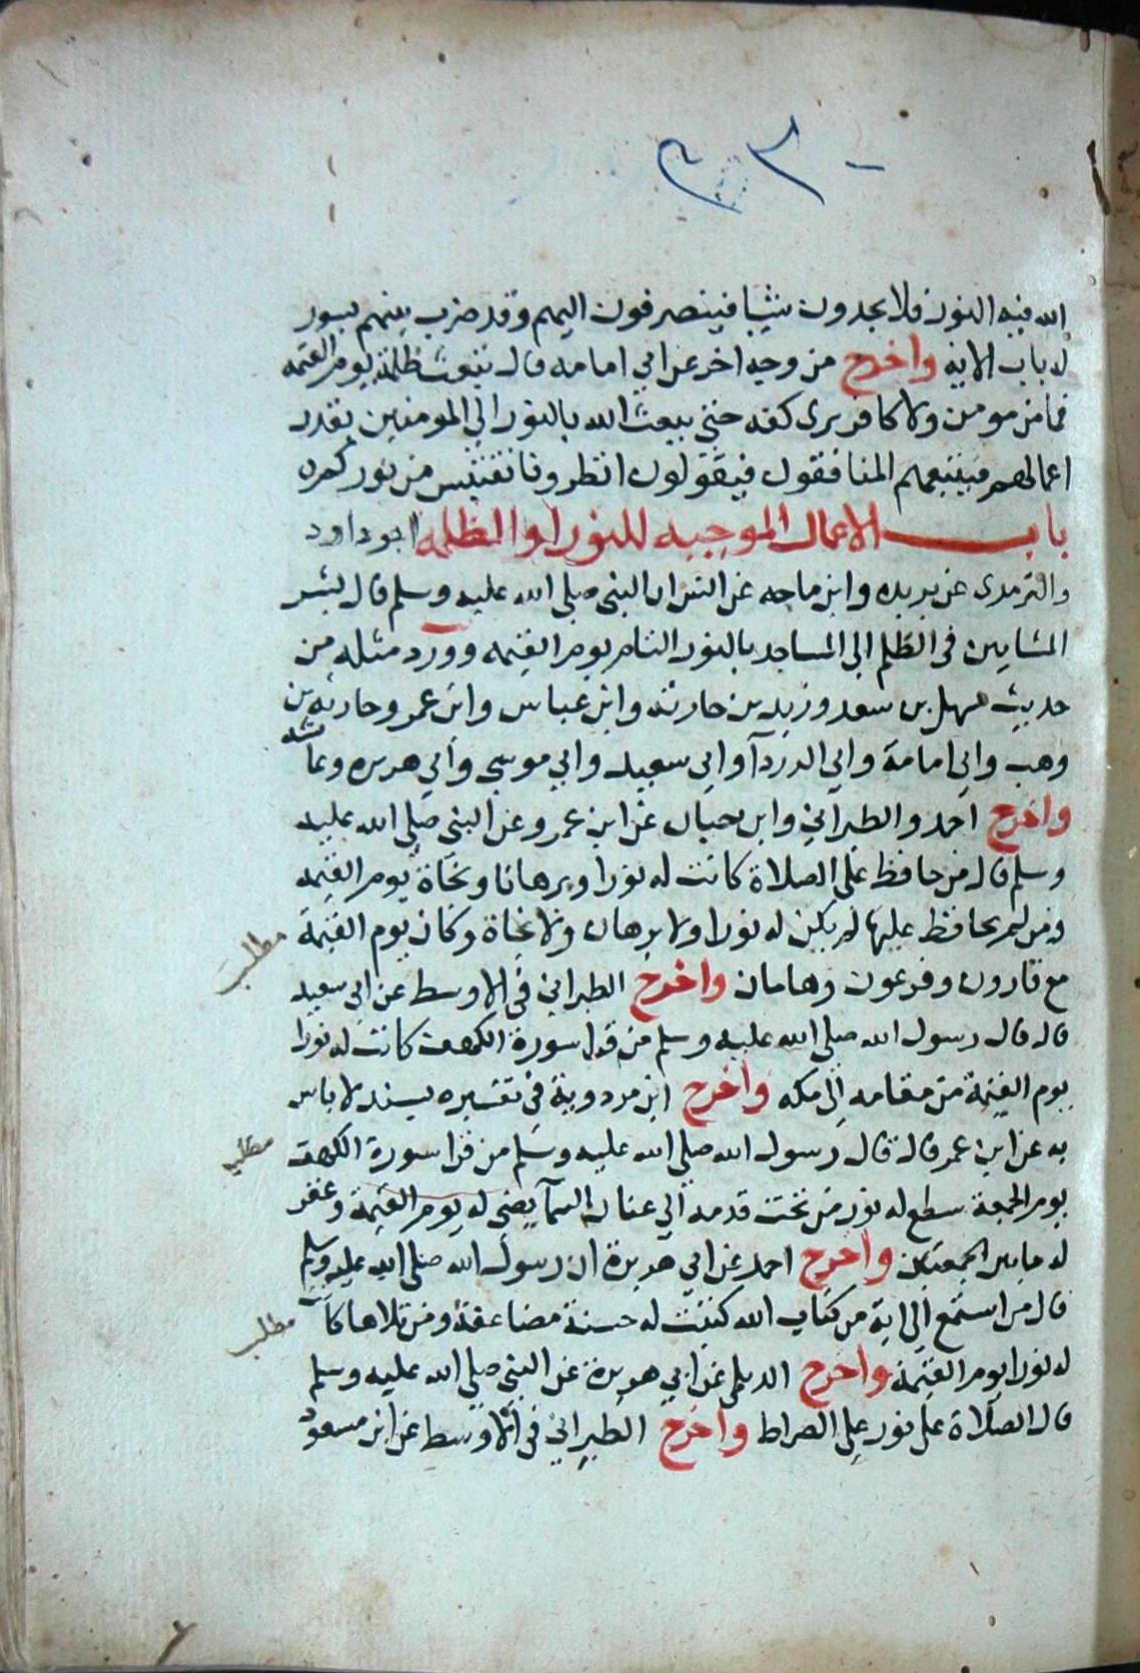 الله فيه النور فلا يجدون شيا فينصرفون اليهم وقد ضرب بينهم بسور
له باب الاية واخرج من وجه اخر عن ابي امامه قال تبعث ظلمة يوم القيمه
فما من مومن ولا كافر يرى كفه حتى يبعث الله بالنور الي المومنين بقدر
اعمالهم فيتبعهم المنافقون فيقولون انظرونا نقتبس من نوركم
باب الاعمال الموجبه للنور او الظلمه ابو داود
والترمدى عن بريده وابن ماجه عن انس ان النبى صلى الله عليه وسلم قال بشر
المشايين فى الظلم الى المساجد بالنور التام يوم القيمه وورد مثله من
حديث سهل بن سعد وزيد بن حارثه وابن عباس وابن عمر وحارثه بن
وهب وابي امامة وابي الدردآ وابي سعيد وابي موسي وابي هريره وعائشه
واخرج احمد والطبراني وابن حبان عن ابن عمرو عن النبى صلي الله عليه
وسلم قال من حافظ علي الصلاة كانت له نورا وبرهانا ونجاة يوم القيمه
ومن لم يحافظ عليها لم يكن له نورا ولا برهان ولا نجاة وكان يوم القيمة
مع قارون وفرعون وهامان واخرج الطبراني في الاوسط عن ابي سعيد
قال قال رسول الله صلي الله عليه وسلم من قرا سورة الكهف كانت له نورا
يوم القيمة من مقامه الي مكه واخرج ابن مردوية في تفسيره بسند لا باس
به عن ابن عمر قال قال رسول الله صلي الله عليه وسلم من قرا سورة الكهف
يوم الجمعة سطع له نور من تحت قدمه الي عنان السمآ يضى له يوم القيمة وغفر
له ما بين الجمعتين واخرج احمد عن ابي هريرة ان رسول الله صلي الله عليه وسلم
قال من استمع الي اية من كتاب الله كتبت له حسنة مضاعفة ومن تلاها كانت
له نورا يوم القيمة واخرج الديلمي عن ابي هريرة عن النبى صلي الله عليه وسلم
قال الصلاة علي نور علي الصراط واخرج الطبراني في الاوسط عن ابن مسعود
مطلب
مطلب
مطلب